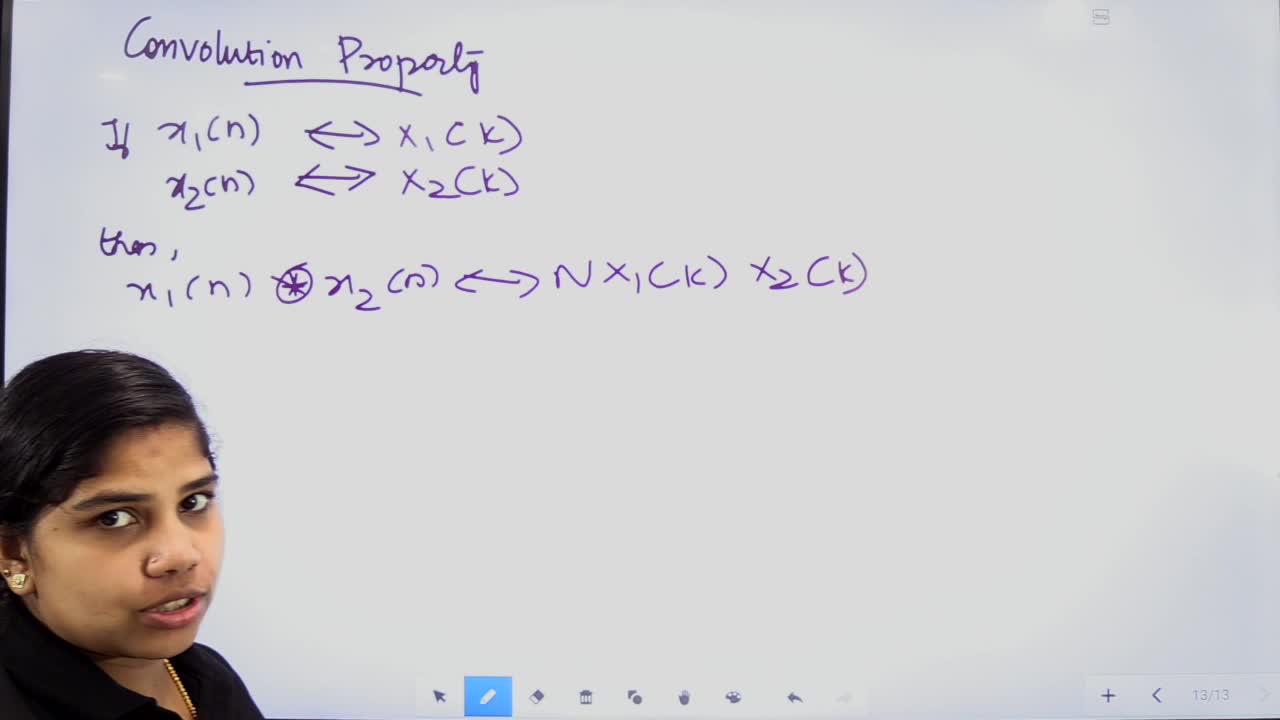 Convolution Property
If x₁(n) ⟷ X₁(k)
x₂(n) ⟷ X₂(k)
then,
x₁(n) ⊛ x₂(n) ⟷ N X₁(k) X₂(k)
13/13